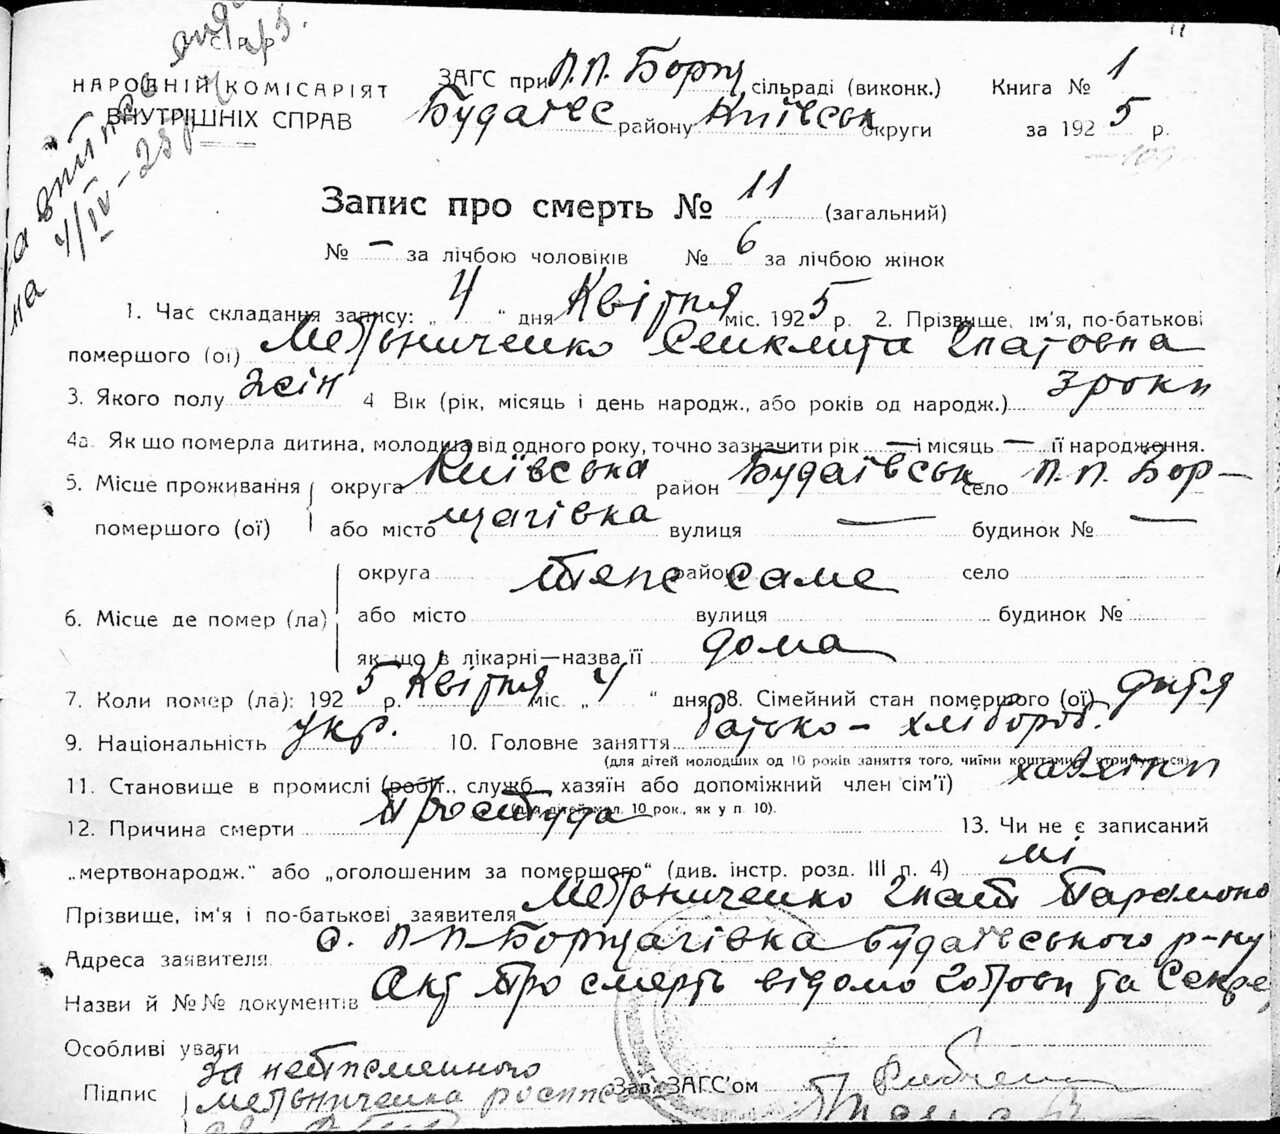 С Р Р
НАРОДНІЙ КОМІСАРІЯТ
ВНУТРІШНІХ СПРАВ
на 4/IV-25р
ЗАГС при П.П. Борщ сільраді (виконк.) Книга № 1
Будаївс району Київськ округи за 1925 р.
Запис про смерть № 11 (загальний)
№ — за лічбою чоловіків № 6 за лічбою жінок
1. Час складання запису: „ 4 “ дня Квітня міс. 1925 р. 2. Прізвище, ім'я, по-батькові
помершого (ої) Мельниченко Сенклита Гнатовна
3. Якого полу жін 4 Вік (рік, місяць і день народж., або років од народж.) 3 роки
4а. Як що померла дитина, молодша від одного року, точно зазначити рік — і місяць — її народження.
5. Місце проживання округа Київська район Будаївськ село П.П. Бор-
помершого (ої) або місто щагівка вулиця — будинок № —
округа Теж саме район село
6. Місце де помер (ла) або місто вулиця будинок №
як що в лікарні—назва її дома
7. Коли помер (ла): 1925 р. Квітня міс. „ 4 “ дня 8. Сімейний стан помершого (ої) дитя
9. Національність укр. 10. Головне заняття батько - хлібороб.
(для дітей молодших од 10 років заняття того, чиїми коштами утримується)
11. Становище в промислі (робіт., служб., хазяїн або допоміжний член сім'ї) хазяїни
(для дітей мол. 10 рок., як у п. 10).
12. Причина смерти Простуда 13. Чи не є записаний
„мертвонародж.“ або „оголошеним за помершого“ (див. інстр. розд. III п. 4) ні
Прізвище, ім'я і по-батькові заявителя Мельниченко Гнат Парамоно
Адреса заявителя с. ПП Борщагівка Будаївського р-ну
Назви й №№ документів Акт про смерть відомо Голови та Секре
Особливі уваги
Підпис За неписменного Зав. ЗАГС'ом
Мельниченка росписа